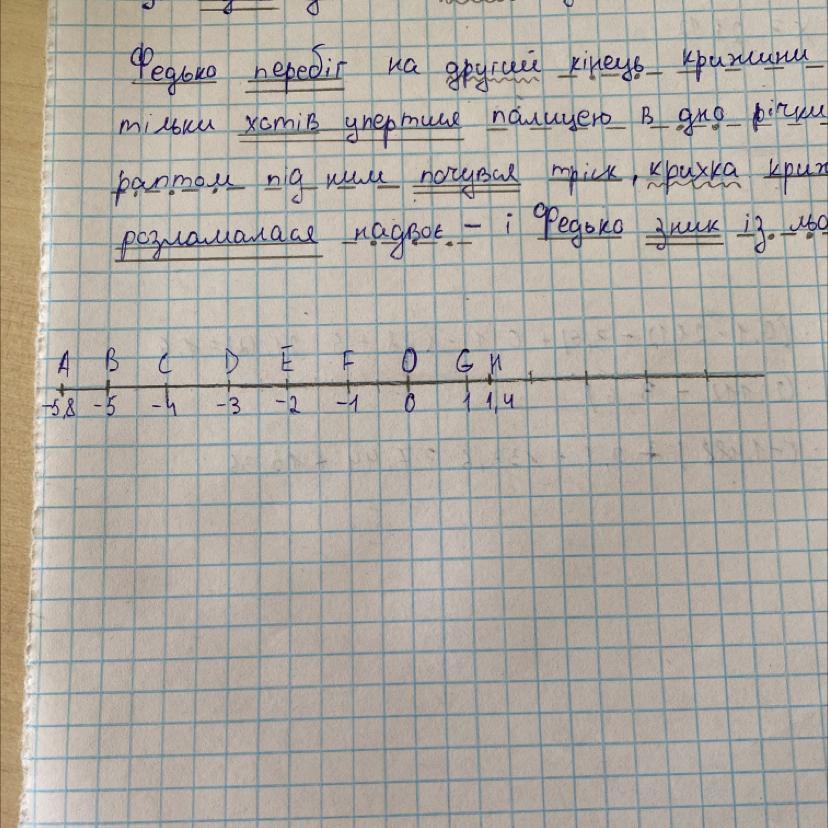 Федько перебіг на другий кінець крижини
тільки хотів упертися палицею в дно річки
раптом під ним почувся тріск, крихка криж
розламалася надвоє – і Федько зник із льо
A B C D E F O G H
-5,8 -5 -4 -3 -2 -1 0 1 1,4